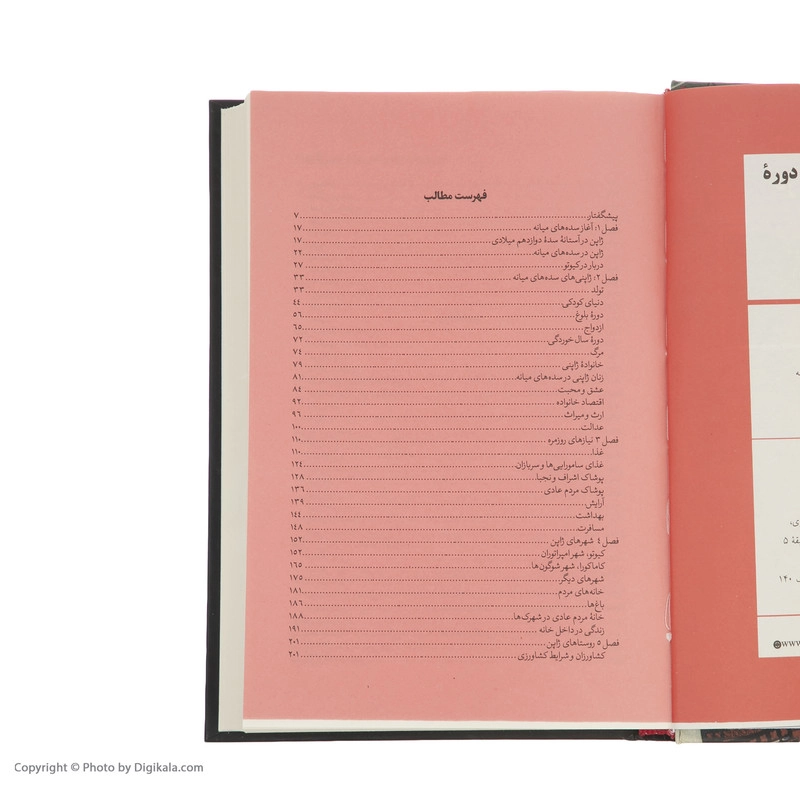 فهرست مطالب
پیشگفتار ۷
فصل ۱: آغاز سده‌های میانه ۱۷
ژاپن در آستانهٔ سدهٔ دوازدهم میلادی ۱۷
ژاپن در سده‌های میانه ۲۲
دربار در کیوتو ۲۷
فصل ۲: ژاپنی‌های سده‌های میانه ۳۳
تولد ۳۳
دنیای کودکی ۴۴
دورهٔ بلوغ ۵۶
ازدواج ۶۵
دورهٔ سال خوردگی ۷۲
مرگ ۷۴
خانوادهٔ ژاپنی ۷۹
زنان ژاپنی در سده‌های میانه ۸۱
عشق و محبت ۸۴
اقتصاد خانواده ۹۲
ارث و میراث ۹۶
عدالت ۱۰۰
فصل ۳ نیازهای روزمره ۱۱۰
غذا ۱۱۰
غذای سامورایی‌ها و سربازان ۱۲۴
پوشاک اشراف و نجبا ۱۲۸
پوشاک مردم عادی ۱۳۶
آرایش ۱۳۹
بهداشت ۱۴۴
مسافرت ۱۴۸
فصل ۴ شهرهای ژاپن ۱۵۲
کیوتو، شهر امپراتوران ۱۵۲
کاماکورا، شهر شوگون‌ها ۱۶۵
شهرهای دیگر ۱۷۵
خانه‌های مردم ۱۸۱
باغ‌ها ۱۸۶
خانهٔ مردم عادی در شهرک‌ها ۱۸۸
زندگی در داخل خانه ۱۹۱
فصل ۵ روستاهای ژاپن ۲۰۱
کشاورزان و شرایط کشاورزی ۲۰۱
دورهٔ
۵
۱۴۰
www
Copyright © Photo by Digikala.com